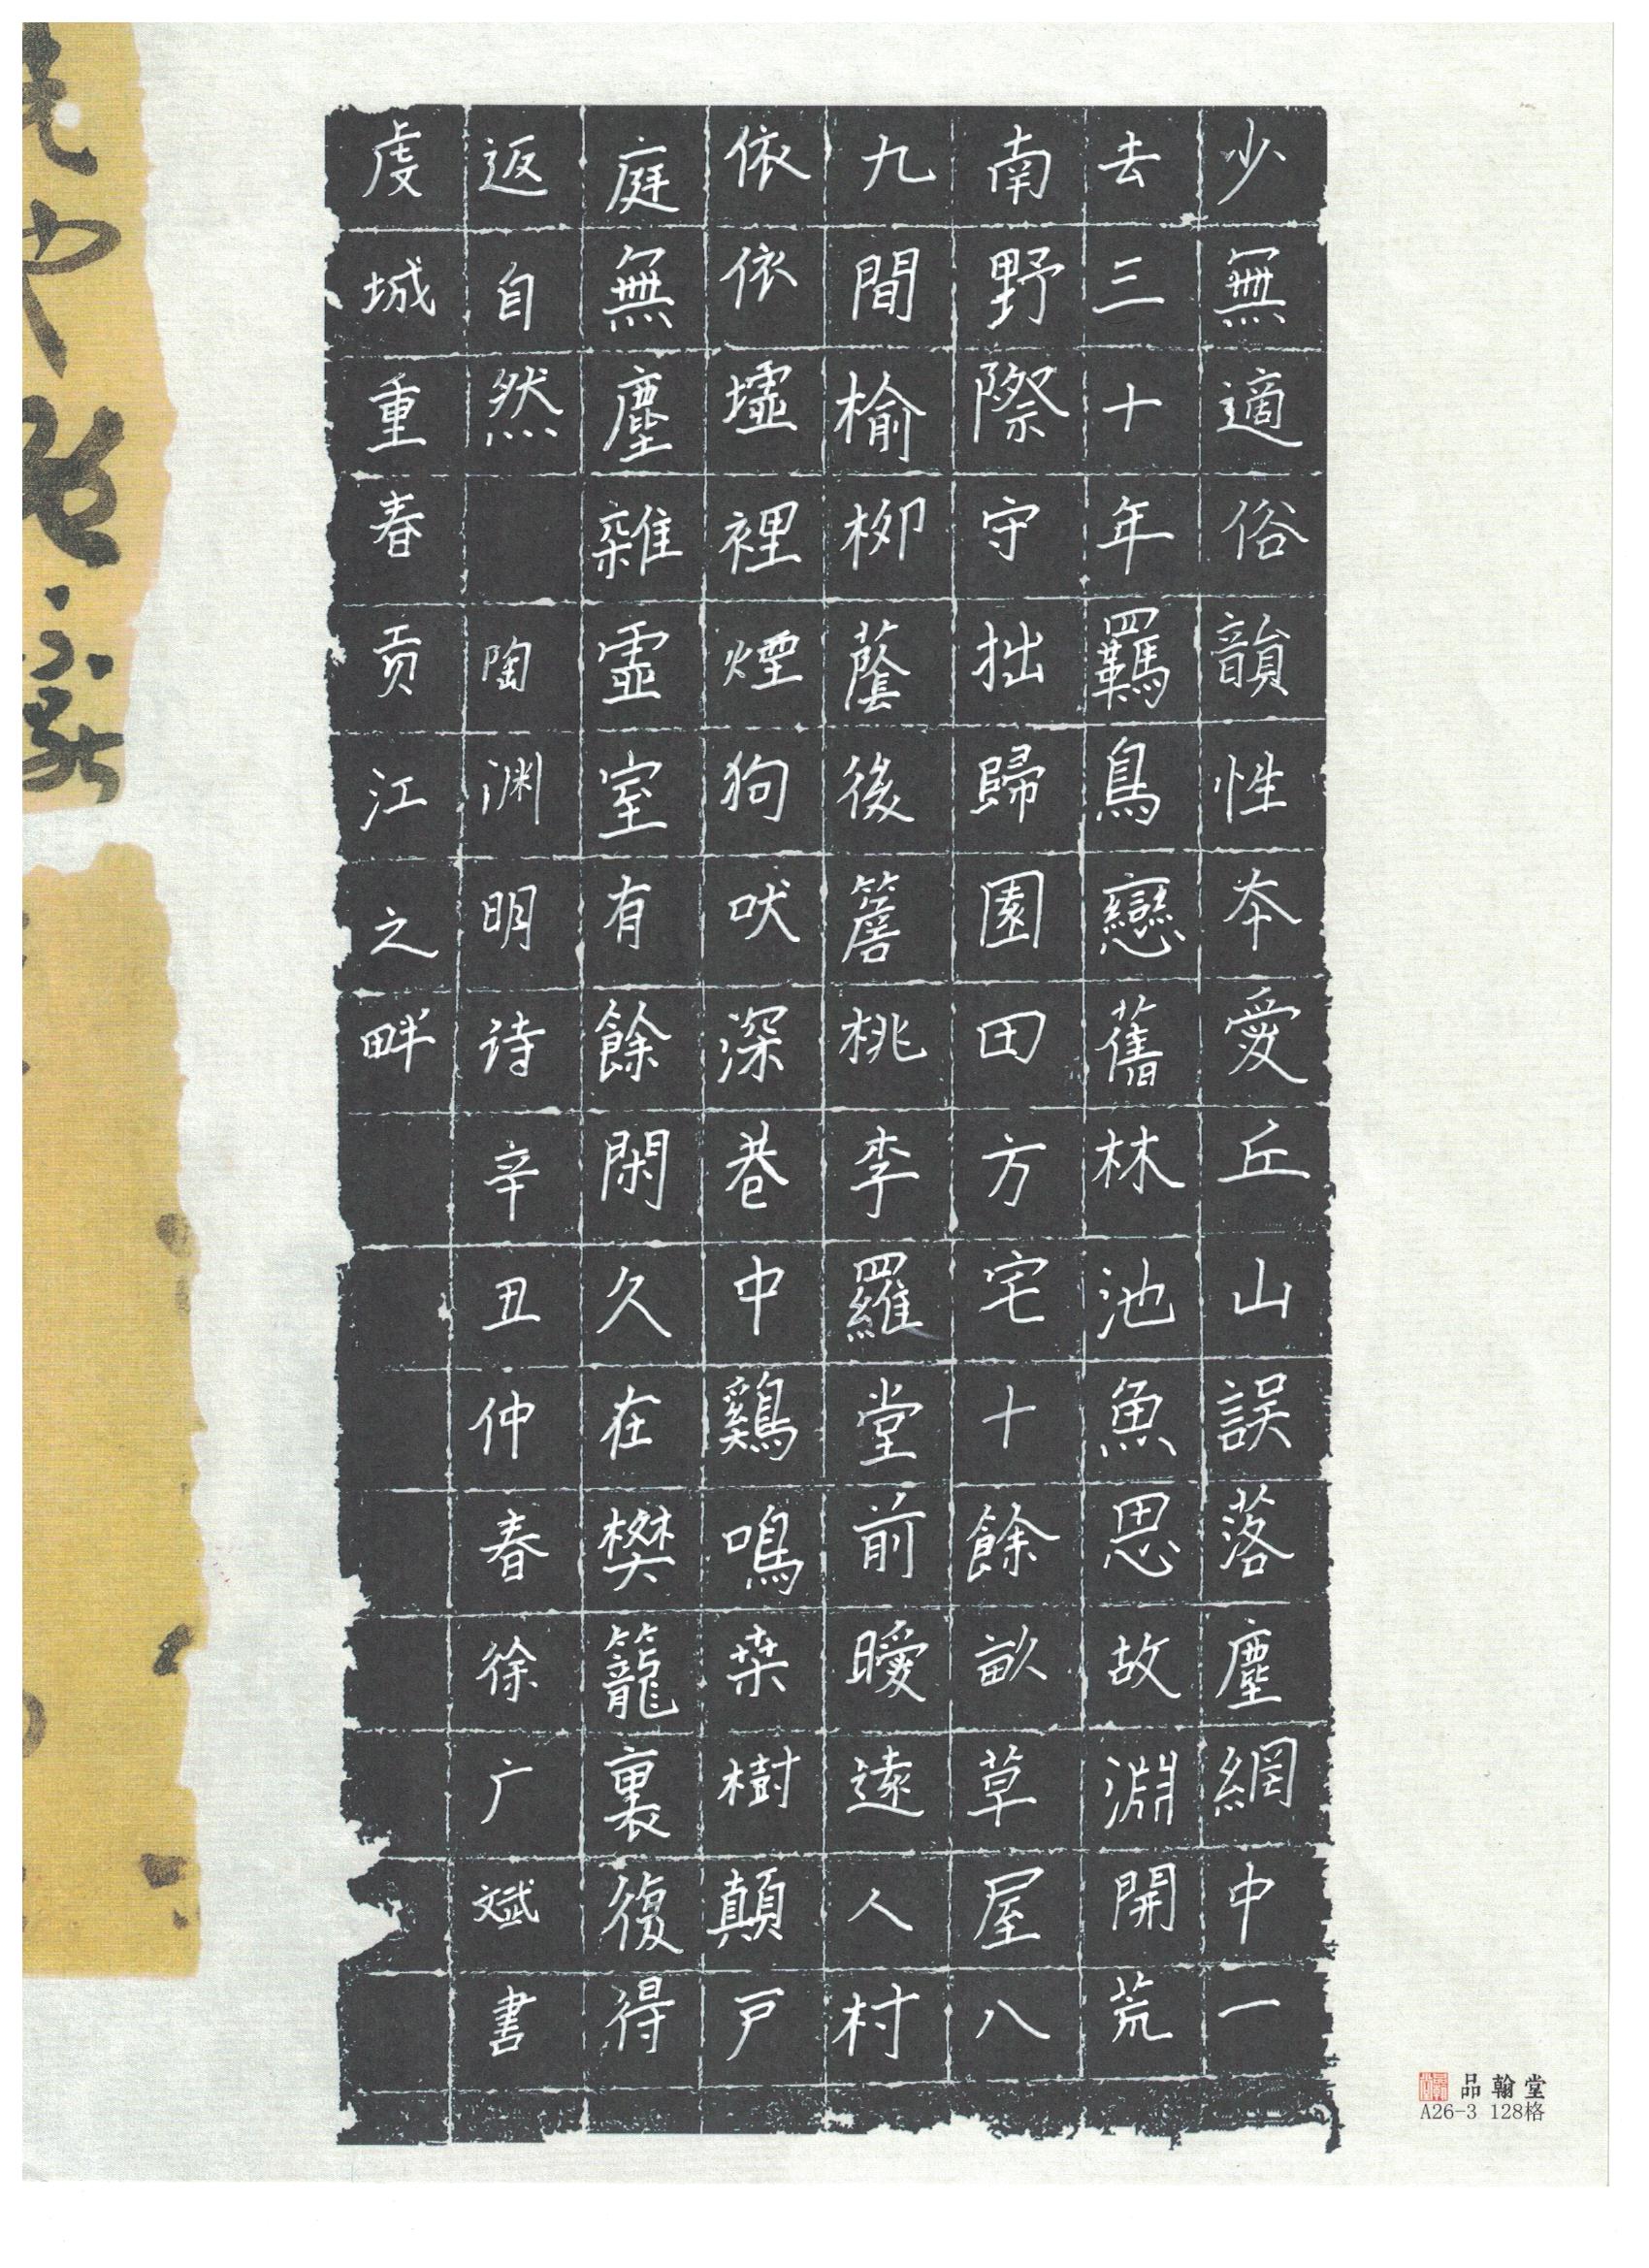 少無適俗韻性本愛丘山誤落塵網中一
去三十年羈鳥戀舊林池魚思故淵開荒
南野際守拙歸園田方宅十餘畝草屋八
九間榆柳蔭後簷桃李羅堂前曖遠人村
依依墟裡煙狗吠深巷中鷄鳴桒樹顛戶
庭無塵雜虛室有餘閑久在樊籠裏復得
返自然 陶渊明诗辛丑仲春徐广斌書
虔城重春贡江之畔
品翰堂
A26-3 128格